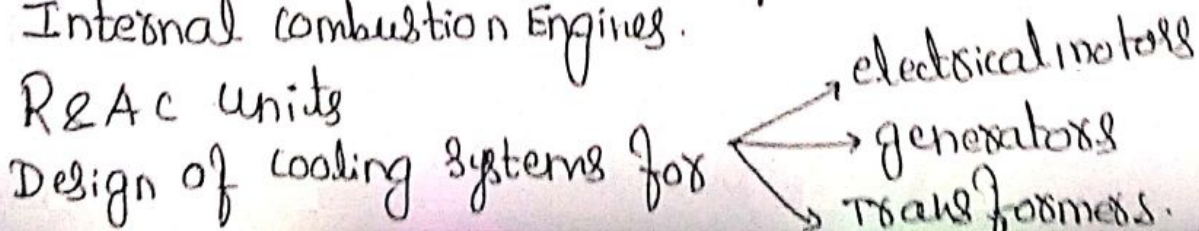 Internal Combustion Engines.
R&AC Units
Design of cooling systems for
→ electrical motors
→ generators
→ Transformers.